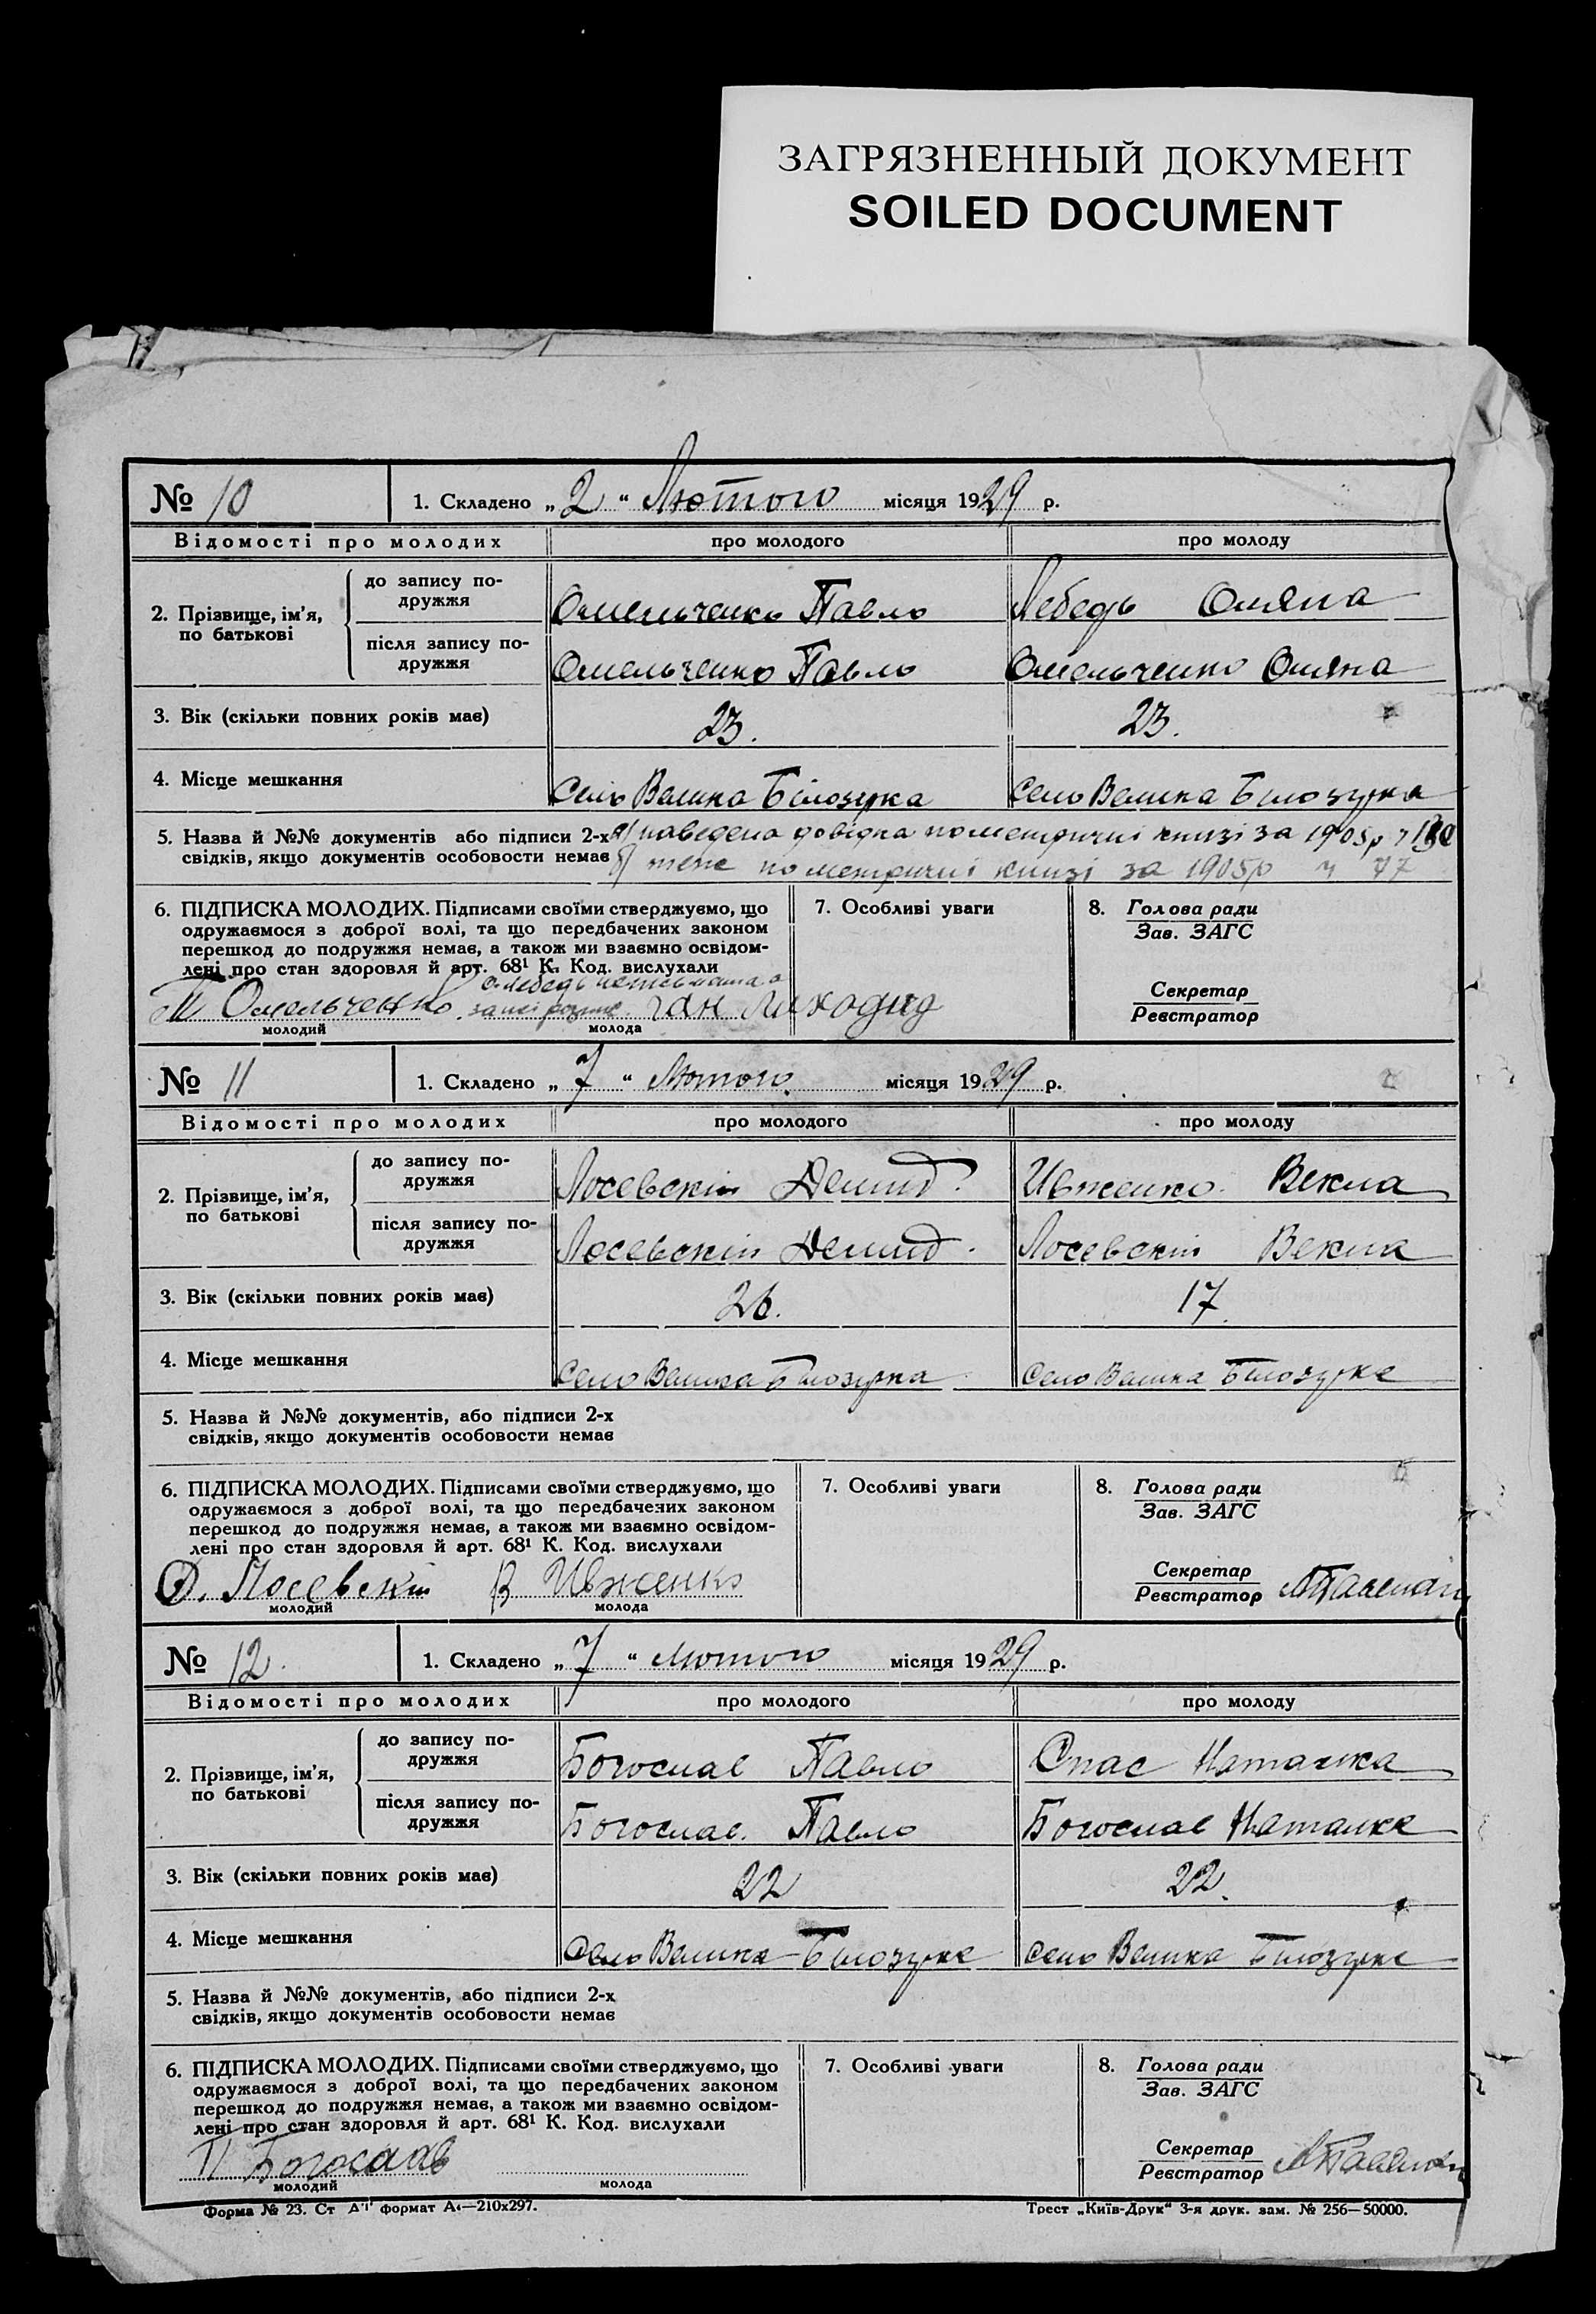 ЗАГРЯЗНЕННЫЙ ДОКУМЕНТ
SOILED DOCUMENT
№ 10 1. Складено „2“ Лютого місяця 1929 р.
Відомості про молодих про молодого про молоду
2. Прізвище, ім'я, по батькові
до запису подружжя Омельченко Павло Лебедь Оляна
після запису подружжя Омельченко Павло Омельченко Оляна
3. Вік (скільки повних років має) 23. 23.
4. Місце мешкання Село Велика Білозирка Село Велика Білозирка
5. Назва й №№ документів або підписи 2-х а) наведена довідка по метричні книзі за 1905р
свідків, якщо документів особовости немає б) теж по метричні книзі за 1905р ч 77
6. ПІДПИСКА МОЛОДИХ. Підписами своїми стверджуємо, що 7. Особливі уваги 8. Голова ради
одружаємося з доброї волі, та що передбачених законом Зав. ЗАГС
перешкод до подружжя немає, а також ми взаємно освідом-
лені про стан здоровля й арт. 68¹ К. Код. вислухали Секретар
П Омельченко Лиходид Реєстратор
молодий молода
№ 11 1. Складено „7“ Лютого місяця 1929 р.
Відомості про молодих про молодого про молоду
2. Прізвище, ім'я, по батькові
до запису подружжя Лосевскій Демид. Ивженко Векла
після запису подружжя Лосевскій Демид. Лосевскій Векла
3. Вік (скільки повних років має) 26. 17.
4. Місце мешкання Село Велика Білозирка Село Велика Білозирка
5. Назва й №№ документів, або підписи 2-х
свідків, якщо документів особовости немає
6. ПІДПИСКА МОЛОДИХ. Підписами своїми стверджуємо, що 7. Особливі уваги 8. Голова ради
одружаємося з доброї волі, та що передбачених законом Зав. ЗАГС
перешкод до подружжя немає, а також ми взаємно освідом-
лені про стан здоровля й арт. 68¹ К. Код. вислухали Секретар
Д. Лосевскій В Ивженко Реєстратор
молодий молода
№ 12. 1. Складено „7“ Лютого місяця 1929 р.
Відомості про молодих про молодого про молоду
2. Прізвище, ім'я, по батькові
до запису подружжя Богослав Павло Спас Наталка
після запису подружжя Богослав. Павло Богослав Наталка
3. Вік (скільки повних років має) 22 22.
4. Місце мешкання Село Велика Білозирка Село Велика Білозирка
5. Назва й №№ документів, або підписи 2-х
свідків, якщо документів особовости немає
6. ПІДПИСКА МОЛОДИХ. Підписами своїми стверджуємо, що 7. Особливі уваги 8. Голова ради
одружаємося з доброї волі, та що передбачених законом Зав. ЗАГС
перешкод до подружжя немає, а також ми взаємно освідом-
лені про стан здоровля й арт. 68¹ К. Код. вислухали Секретар
П Богослав Реєстратор
молодий молода
Форма № 23. Ст формат А₄—210x297. Трест „Київ-Друк“ 3-я друк. зам. № 256—50000.